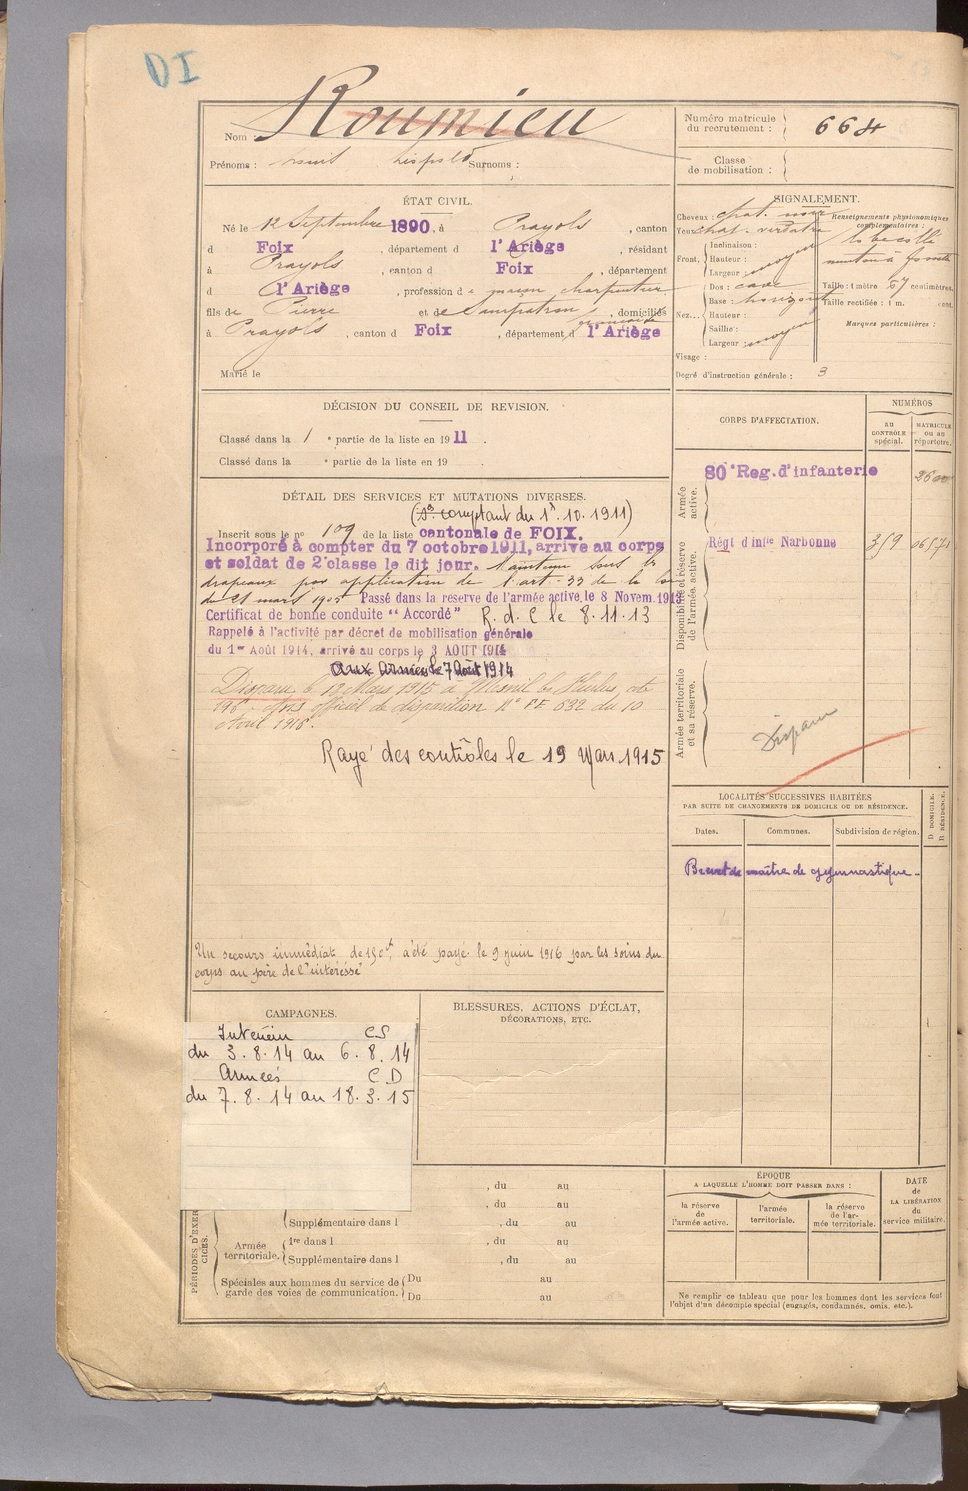 DI
Nom : Roumieu
Prénoms : Surnoms :
Numéro matricule du recrutement : 664
Classe de mobilisation :
ÉTAT CIVIL.
Né le 12 Septembre 1890, à Prayols, canton
d Foix, département d l'Ariège, résidant
à Prayols, canton d Foix, département
d l'Ariège, profession de maçon charpentier
fils de Pierre et de, domiciliés
à Prayols, canton d Foix, département d l'Ariège
Marié le
SIGNALEMENT.
Cheveux : chat. noir
Yeux chat. verdâtre
Front, Inclinaison :
Hauteur : moyen
Largeur :
Nez... Dos : cave
Base : horizont
Hauteur :
Saillie :
Largeur : moyen
Visage :
Renseignements physionomiques complémentaires :
menton à fossette
Taille : 1 mètre 67 centimètres.
Taille rectifiée : 1 m. cent.
Marques particulières :
Degré d'instruction générale : 3
DÉCISION DU CONSEIL DE REVISION.
Classé dans la 1 e partie de la liste en 1911.
Classé dans la e partie de la liste en 19 .
CORPS D'AFFECTATION.
NUMÉROS
AU CONTRÔLE spécial.
MATRICULE OU AU répertoire.
Armée active.
80e Reg. d'infanterie
Disponibilité et réserve de l'armée active.
Régt d'infie Narbonne 359
Armée territoriale et sa réserve.
Disparu
DÉTAIL DES SERVICES ET MUTATIONS DIVERSES.
(Sce comptant du 1er.10.1911)
Inscrit sous le no 109 de la liste cantonale de FOIX.
Incorporé à compter du 7 octobre 1911, arrive au corps
et soldat de 2e classe le dit jour. Maintenu sous les
drapeaux par application de l'art. 33 de la loi
du 21 mars 1905 Passé dans la reserve de l'armée active, le 8 Novem. 1913
Certificat de bonne conduite "Accordé" R. d. C le 8.11.13
Rappelé à l'activité par décret de mobilisation générale
du 1er Août 1914, arrivé au corps le 3 AOUT 1914
Aux Armées le 7 Août 1914
Disparu le 18 Mars 1915 à Mesnil les Hurlus,
Avis officiel de disparition No FE 632 du 10
Avril 1916.
Rayé des contrôles le 19 Mars 1915
Un secours immédiat de 150f a été payé le 9 juin 1916 par les soins du
corps au père de l'intéressé
LOCALITÉS SUCCESSIVES HABITÉES
PAR SUITE DE CHANGEMENTS DE DOMICILE OU DE RÉSIDENCE.
Dates. Communes. Subdivision de région.
D. DOMICILE.
R. RÉSIDENCE.
Brevet de maître de gymnastique
CAMPAGNES.
Intérieur CS
du 3.8.14 au 6.8.14
Armées CD
du 7.8.14 au 18.3.15
BLESSURES, ACTIONS D'ÉCLAT,
DÉCORATIONS, ETC.
PÉRIODES D'EXERCICES.
, du au
, du au
Supplémentaire dans l , du au
Armée territoriale. 1re dans l , du au
Supplémentaire dans l , du au
Spéciales aux hommes du service de garde des voies de communication.
Du au
Du au
ÉPOQUE
A LAQUELLE L'HOMME DOIT PASSER DANS :
la réserve de l'armée active.
l'armée territoriale.
la réserve de l'armée territoriale.
DATE de LA LIBÉRATION du service militaire.
Ne remplir ce tableau que pour les hommes dont les services font
l'objet d'un décompte spécial (engagés, condamnés, omis, etc.).